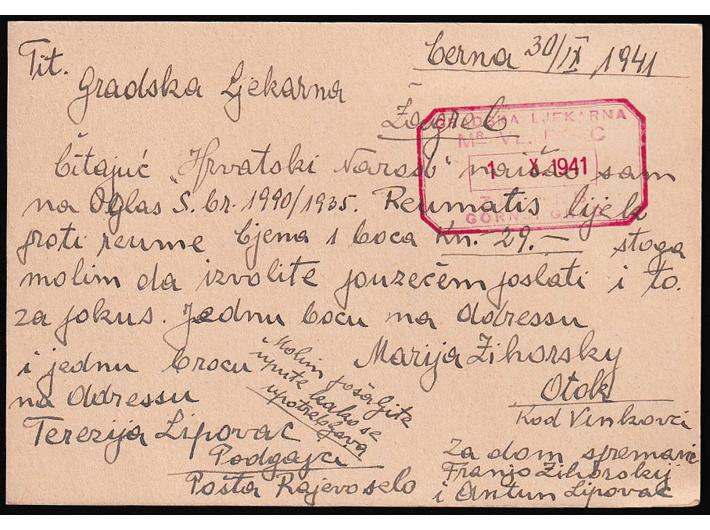 Tit.
Cerna 30/IX 1941
Gradska Ljekarna
Zagreb
GRADSKA LJEKARNA
MR. VL.
1 X 1941
GORNJI GRAD
Čitajuć "Hrvatski Narod" naišao sam
na Oglas "S. br. 1990/1935. Reumatis lijek
proti reume Cjena 1 boca Kn. 29.— stoga
molim da izvolite pouzećem poslati i to.
za pokus. Jednu bocu na adressu
Marija Zihorsky
Otok
Kod Vinkovci
i jednu bocu
na adressu
Terezija Lipovac
Podgajci
Pošta Rajevoselo
Molim pošaljite
upute kako se
upotrebljava
Za dom spremni
Franjo Zihorskij
i Antun Lipovac